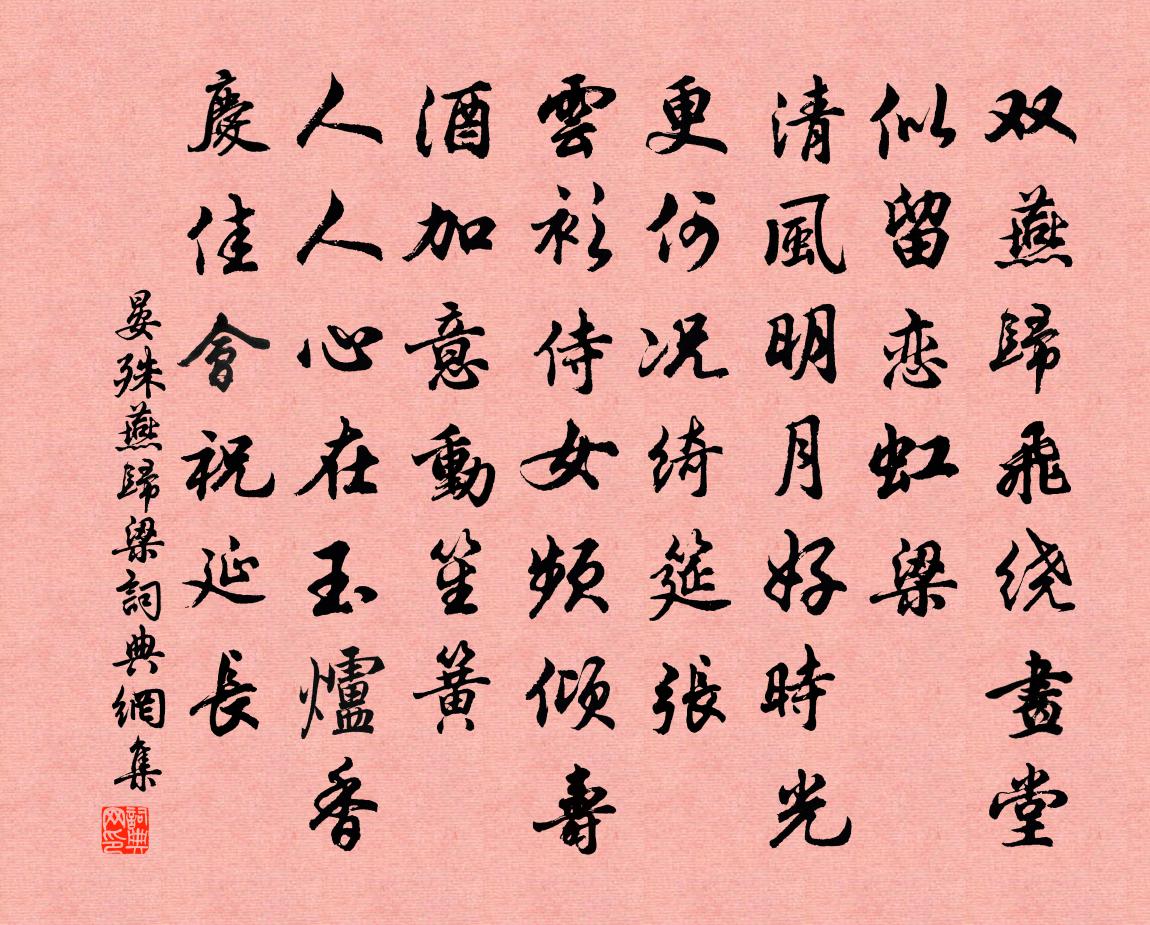 双燕歸飛绕畫堂
似留恋虹梁
清風明月好時光
更何况綺筵張
雲衫侍女頻傾壽
酒加意動笙簧
人人心在玉爐香
慶佳會祝延長
晏殊燕歸梁詞典網集
詞典网印